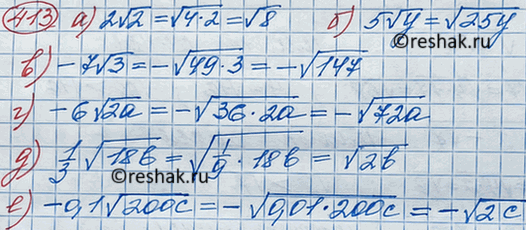 413 а) 2√2 = √(4·2) = √8 б) 5√y = √(25y)
©reshak.ru
в) -7√3 = -√(49·3) = -√147
г) -6√(2a) = -√(36·2a) = -√(72a)
д) 1/3 √(18b) = √(1/9 · 18b) = √(2b)
©reshak.ru
е) -0,1√(200c) = -√(0,01·200c) = -√(2c)